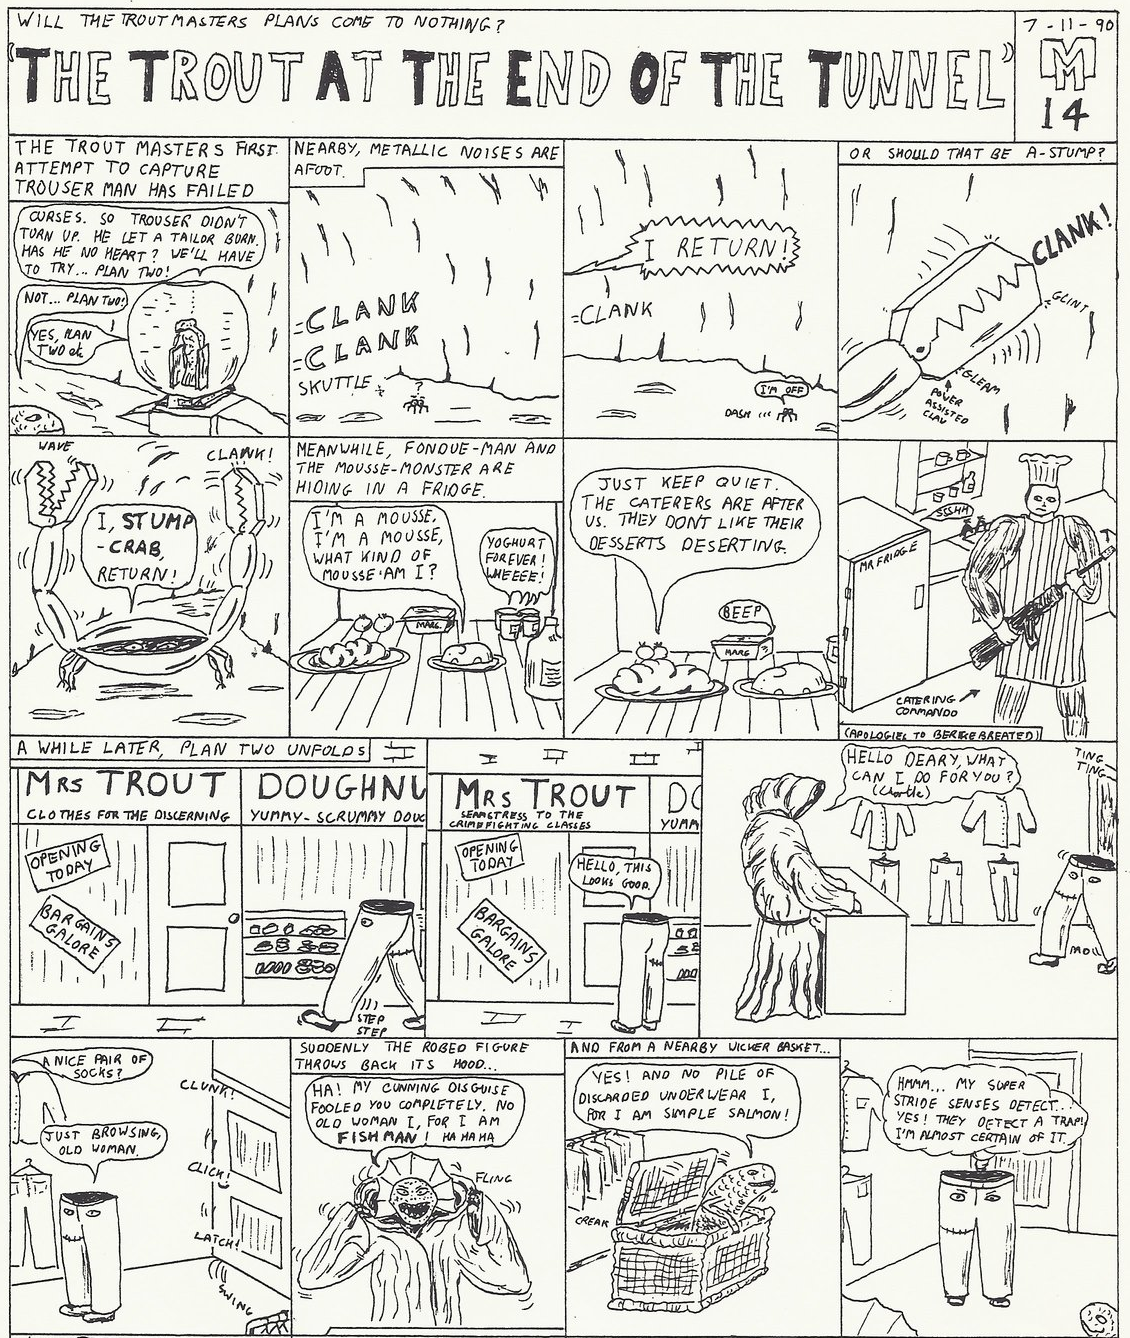 WILL THE TROUTMASTERS PLANS COME TO NOTHING?
7-11-90
'THE TROUT AT THE END OF THE TUNNEL'
MM
14
THE TROUT MASTERS FIRST
ATTEMPT TO CAPTURE
TROUSER MAN HAS FAILED
CURSES. SO TROUSER DIDN'T
TURN UP. HE LET A TAILOR BURN.
HAS HE NO HEART? WE'LL HAVE
TO TRY... PLAN TWO!
NOT... PLAN TWO!
YES, PLAN
TWO
NEARBY, METALLIC NOISES ARE
AFOOT.
CLANK
CLANK
SKUTTLE
?
I RETURN!
CLANK
I'M OFF
DASH
OR SHOULD THAT BE A-STUMP?
CLANK!
GLINT
GLEAM
POWER
ASSISTED
CLAW
WAVE
CLANK!
I, STUMP
-CRAB,
RETURN!
MEANWHILE, FONDUE-MAN AND
THE MOUSSE-MONSTER ARE
HIDING IN A FRIDGE.
I'M A MOUSSE,
I'M A MOUSSE,
WHAT KIND OF
MOUSSE AM I?
YOGHURT
FOREVER!
WHEEEE!
MARG.
JUST KEEP QUIET.
THE CATERERS ARE AFTER
US. THEY DONT LIKE THEIR
DESSERTS DESERTING.
BEEP
MARG
SSSHH
MR FRIDGE
CATERING
COMMANDO
(APOLOGIES TO
A WHILE LATER, PLAN TWO UNFOLDS
MRS TROUT
CLOTHES FOR THE DISCERNING
DOUGHNU
YUMMY-SCRUMMY DOUG
OPENING
TODAY
BARGAINS
GALORE
STEP
STEP
MRS TROUT
SEAMSTRESS TO THE
CRIMEFIGHTING CLASSES
DO
YUMM
OPENING
TODAY
BARGAINS
GALORE
HELLO, THIS
LOOKS GOOD.
HELLO DEARY, WHAT
CAN I DO FOR YOU?
(Chortle)
TING
TING
A NICE PAIR OF
SOCKS?
JUST BROWSING,
OLD WOMAN.
CLUNK!
CLICK!
LATCH!
SWING
SUDDENLY THE ROBED FIGURE
THROWS BACK ITS HOOD...
HA! MY CUNNING DISGUISE
FOOLED YOU COMPLETELY. NO
OLD WOMAN I, FOR I AM
FISHMAN! HA HA HA
FLING
AND FROM A NEARBY WICKER BASKET...
YES! AND NO PILE OF
DISCARDED UNDERWEAR I,
FOR I AM SIMPLE SALMON!
CREAK
HMMM... MY SUPER
STRIDE SENSES DETECT...
YES! THEY DETECT A TRAP!
I'M ALMOST CERTAIN OF IT.